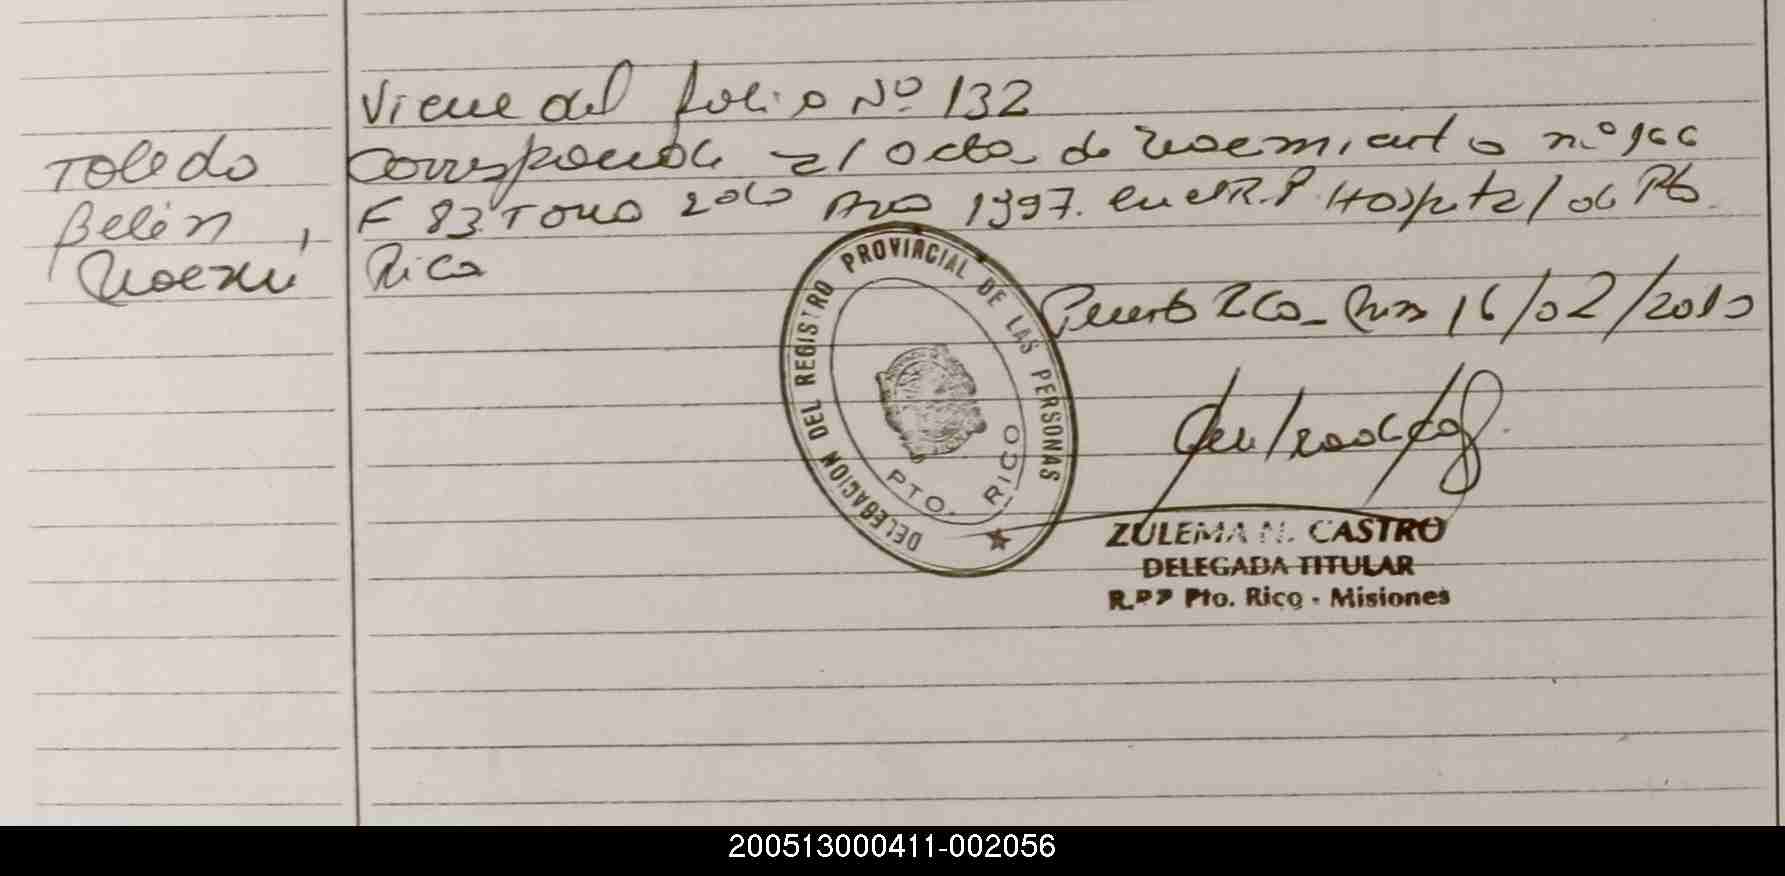 Viene del folio Nº 132
Toledo
Belén,
Noemí
Corresponde al Acta de Nacimiento nº 166
F 83 Tomo 2do Año 1997. en el R.P Hospital de Pto
Rico
Puerto Rico - Mnes 16/02/2010
DELEGACION DEL REGISTRO PROVINCIAL DE LAS PERSONAS
PTO. RICO
ZULEMA N. CASTRO
DELEGADA TITULAR
R.P.P Pto. Rico - Misiones
200513000411-002056